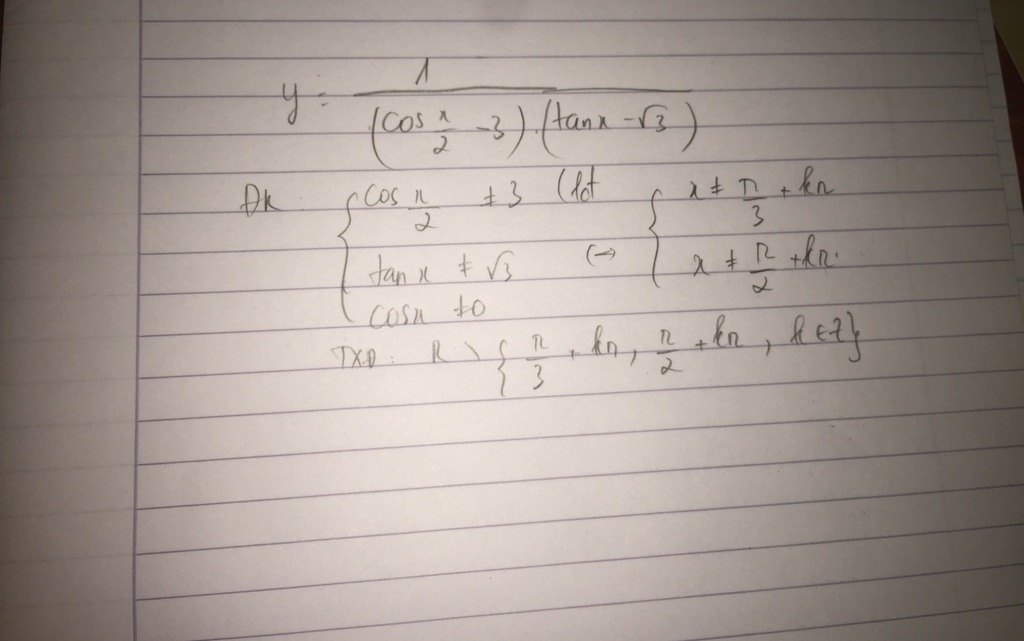 y = 1 / (cos x/2 - 3).(tan x - √3)
Đk { cos x/2 ≠ 3 (lđ
tan x ≠ √3
cos x ≠ 0
(→) { x ≠ π/3 + kπ
x ≠ π/2 + kπ.
TXĐ: R \ { π/3 + kπ, π/2 + kπ, k ∈ Z}